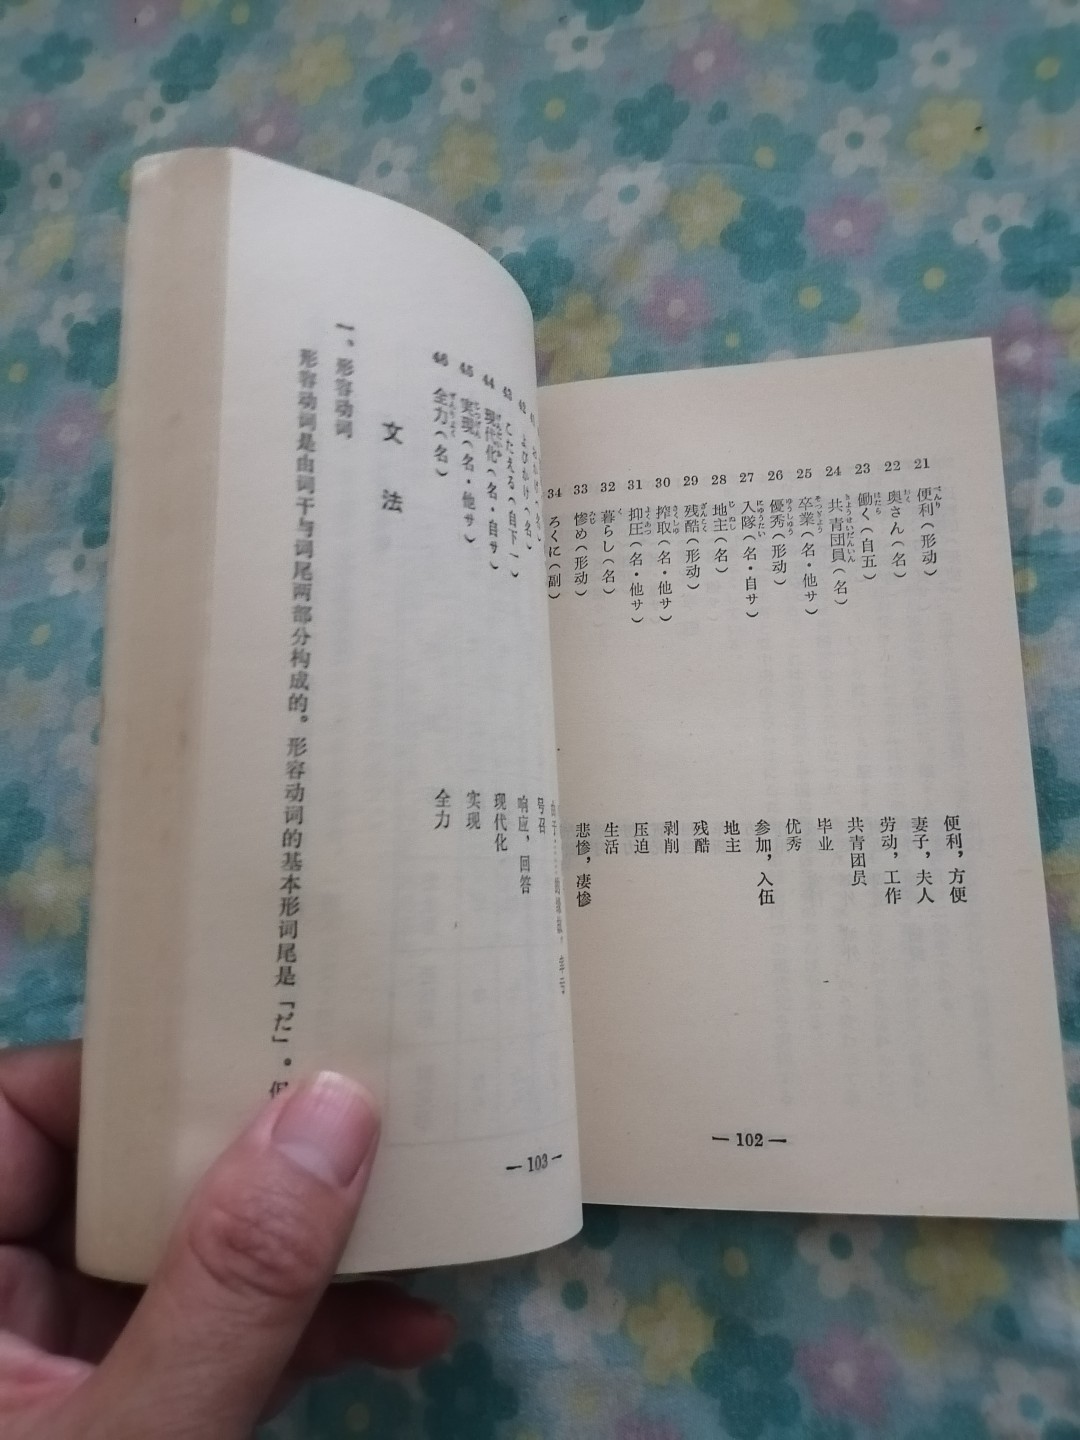 21 便利(形动) 便利，方便
22 奥さん(名) 妻子，夫人
23 働く(自五) 劳动，工作
24 共青团員(名) 共青团员
25 卒業(名・他サ) 毕业
26 優秀(形动) 优秀
27 入隊(名・自サ) 参加，入伍
28 地主(名) 地主
29 残酷(形动) 残酷
30 搾取(名・他サ) 剥削
31 抑圧(名・他サ) 压迫
32 暮らし(名) 生活
33 惨め(形动) 悲惨，凄惨
34 ろくに(副)
— 102 —
42 よびかけ(名) 号召
43 こたえる(自下一) 响应，回答
44 現代化(名・自サ) 现代化
45 実現(名・他サ) 实现
46 全力(名) 全力
文法
一、形容动词
形容动词是由词干与词尾两部分构成的。形容动词的基本形词尾是「だ」。
— 103 —